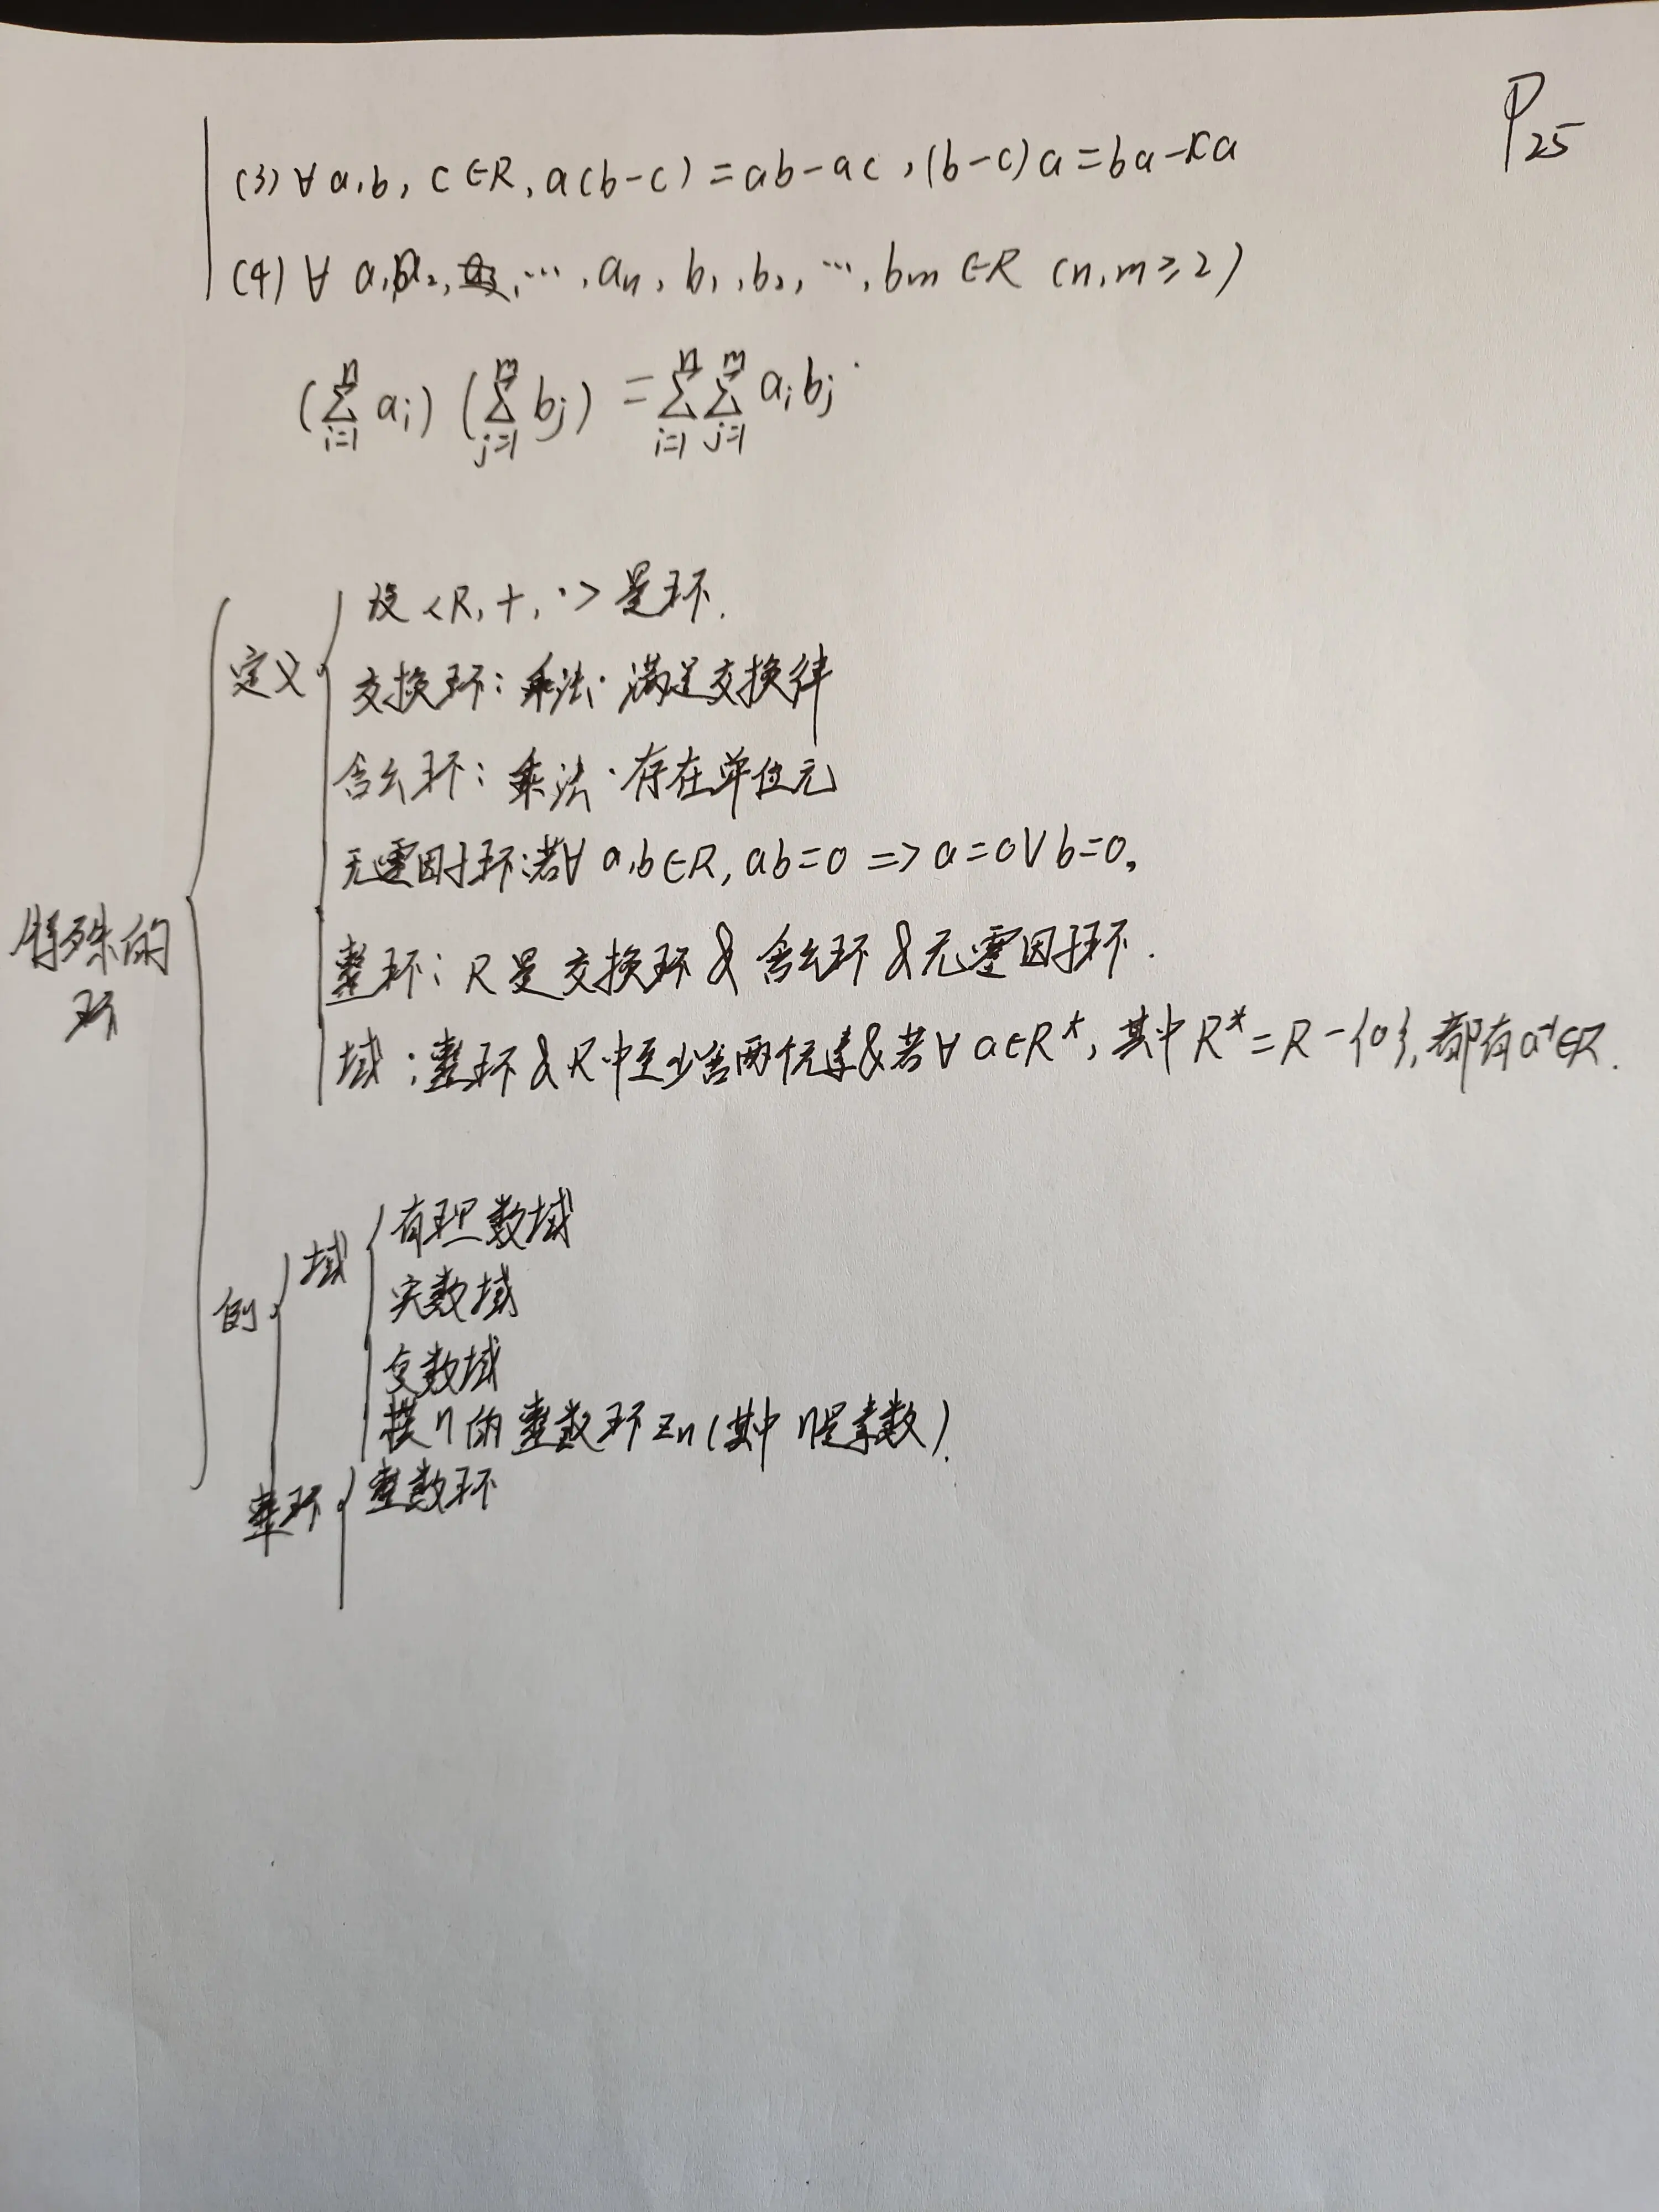 P25
(3) ∀ a,b, c∈R, a(b-c)=ab-ac, (b-c)a=ba-ca
(4) ∀ a1,a2, …, an, b1, b2, …, bm ∈R (n,m≥2)
(∑_{i=1}^{n} ai) (∑_{j=1}^{m} bj) = ∑_{i=1}^{n} ∑_{j=1}^{m} ai bj
特殊的环
定义
设<R, +, ·>是环.
交换环: 乘法·满足交换律
含幺环: 乘法·存在单位元
无零因子环:若∀ a,b∈R, ab=0 => a=0∨b=0。
整环: R是交换环 & 含幺环 & 无零因子环.
域: 整环 & R中至少含两个元素&若∀ a∈R*, 其中R*=R-{0}, 都有a⁻¹∈R.
例
域
有理数域
实数域
复数域
模n的整数环Zn(其中n是素数).
整环
整数环